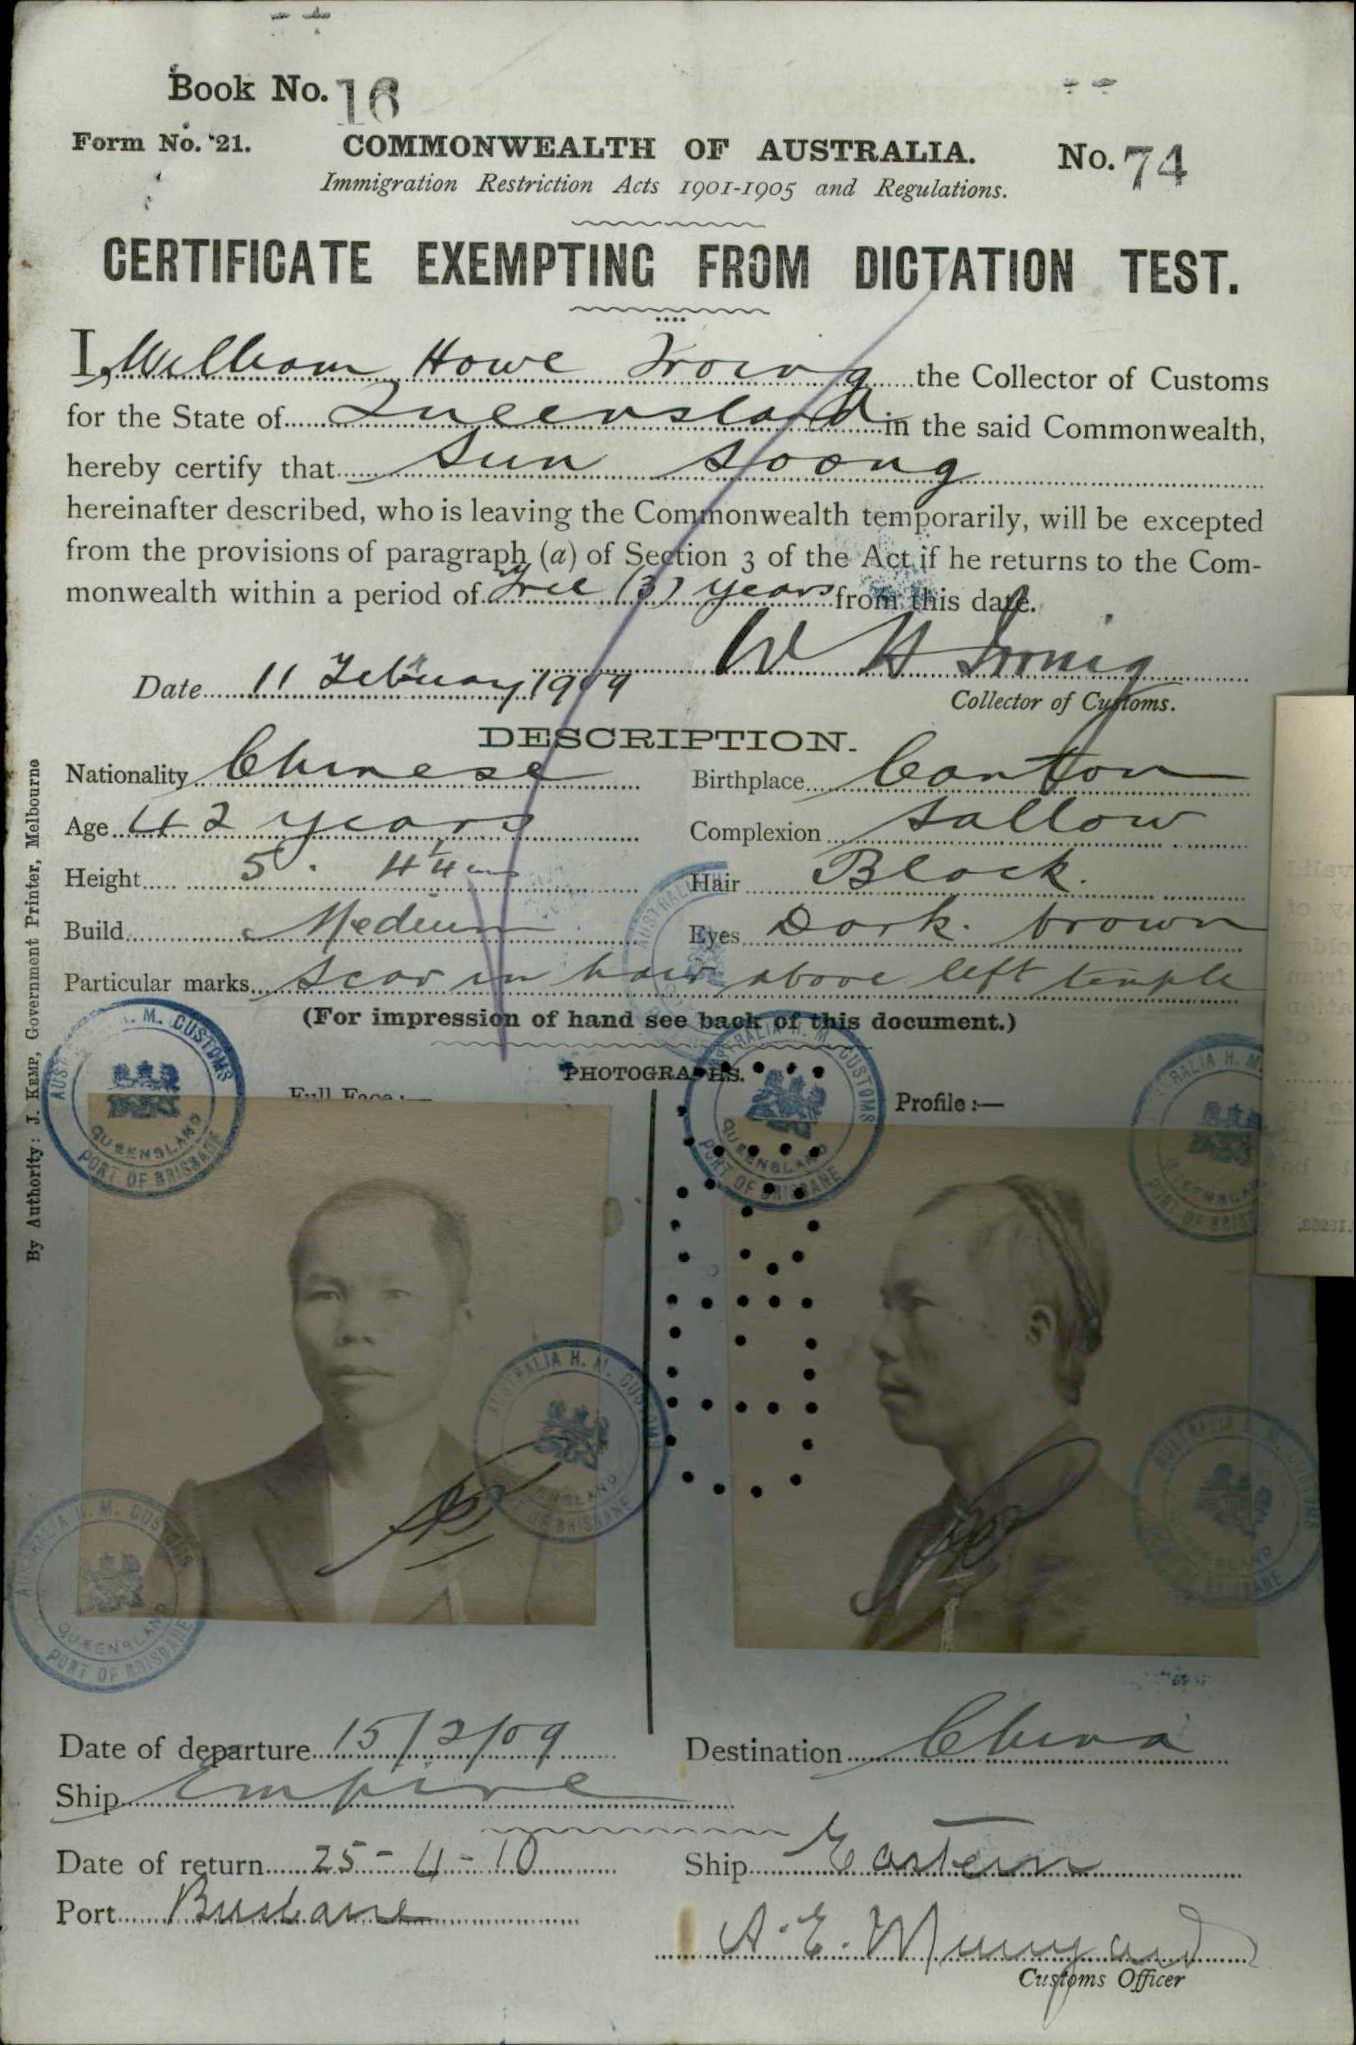 Book No. 16
Form No. 21. COMMONWEALTH OF AUSTRALIA. No. 74
Immigration Restriction Acts 1901-1905 and Regulations.
CERTIFICATE EXEMPTING FROM DICTATION TEST.
I, William Howe Irving the Collector of Customs
for the State of Queensland in the said Commonwealth,
hereby certify that Sun Soong
hereinafter described, who is leaving the Commonwealth temporarily, will be excepted
from the provisions of paragraph (a) of Section 3 of the Act if he returns to the Com-
monwealth within a period of (3) years from this date.
W H Irving
Date 11 February 1909
Collector of Customs.
DESCRIPTION.
Nationality Chinese Birthplace Canton
Age 42 years Complexion Sallow
Height 5. 4 1/4 ins Hair Black.
Build Medium Eyes Dark brown
Particular marks Scar in hair above left temple
(For impression of hand see back of this document.)
PHOTOGRAPHS.
Full Face :— Profile :—
AUSTRALIA H. M. CUSTOMS
QUEENSLAND
PORT OF BRISBANE
AUSTRALIA H. M. CUSTOMS
QUEENSLAND
PORT OF BRISBANE
AUSTRALIA H. M. CUSTOMS
QUEENSLAND
PORT OF BRISBANE
AUSTRALIA H. M. CUSTOMS
QUEENSLAND
PORT OF BRISBANE
Date of departure 15/2/09 Destination China
Ship Empire
Date of return 25-4-10 Ship Eastern
Port Brisbane
Customs Officer
By Authority: J. KEMP, Government Printer, Melbourne